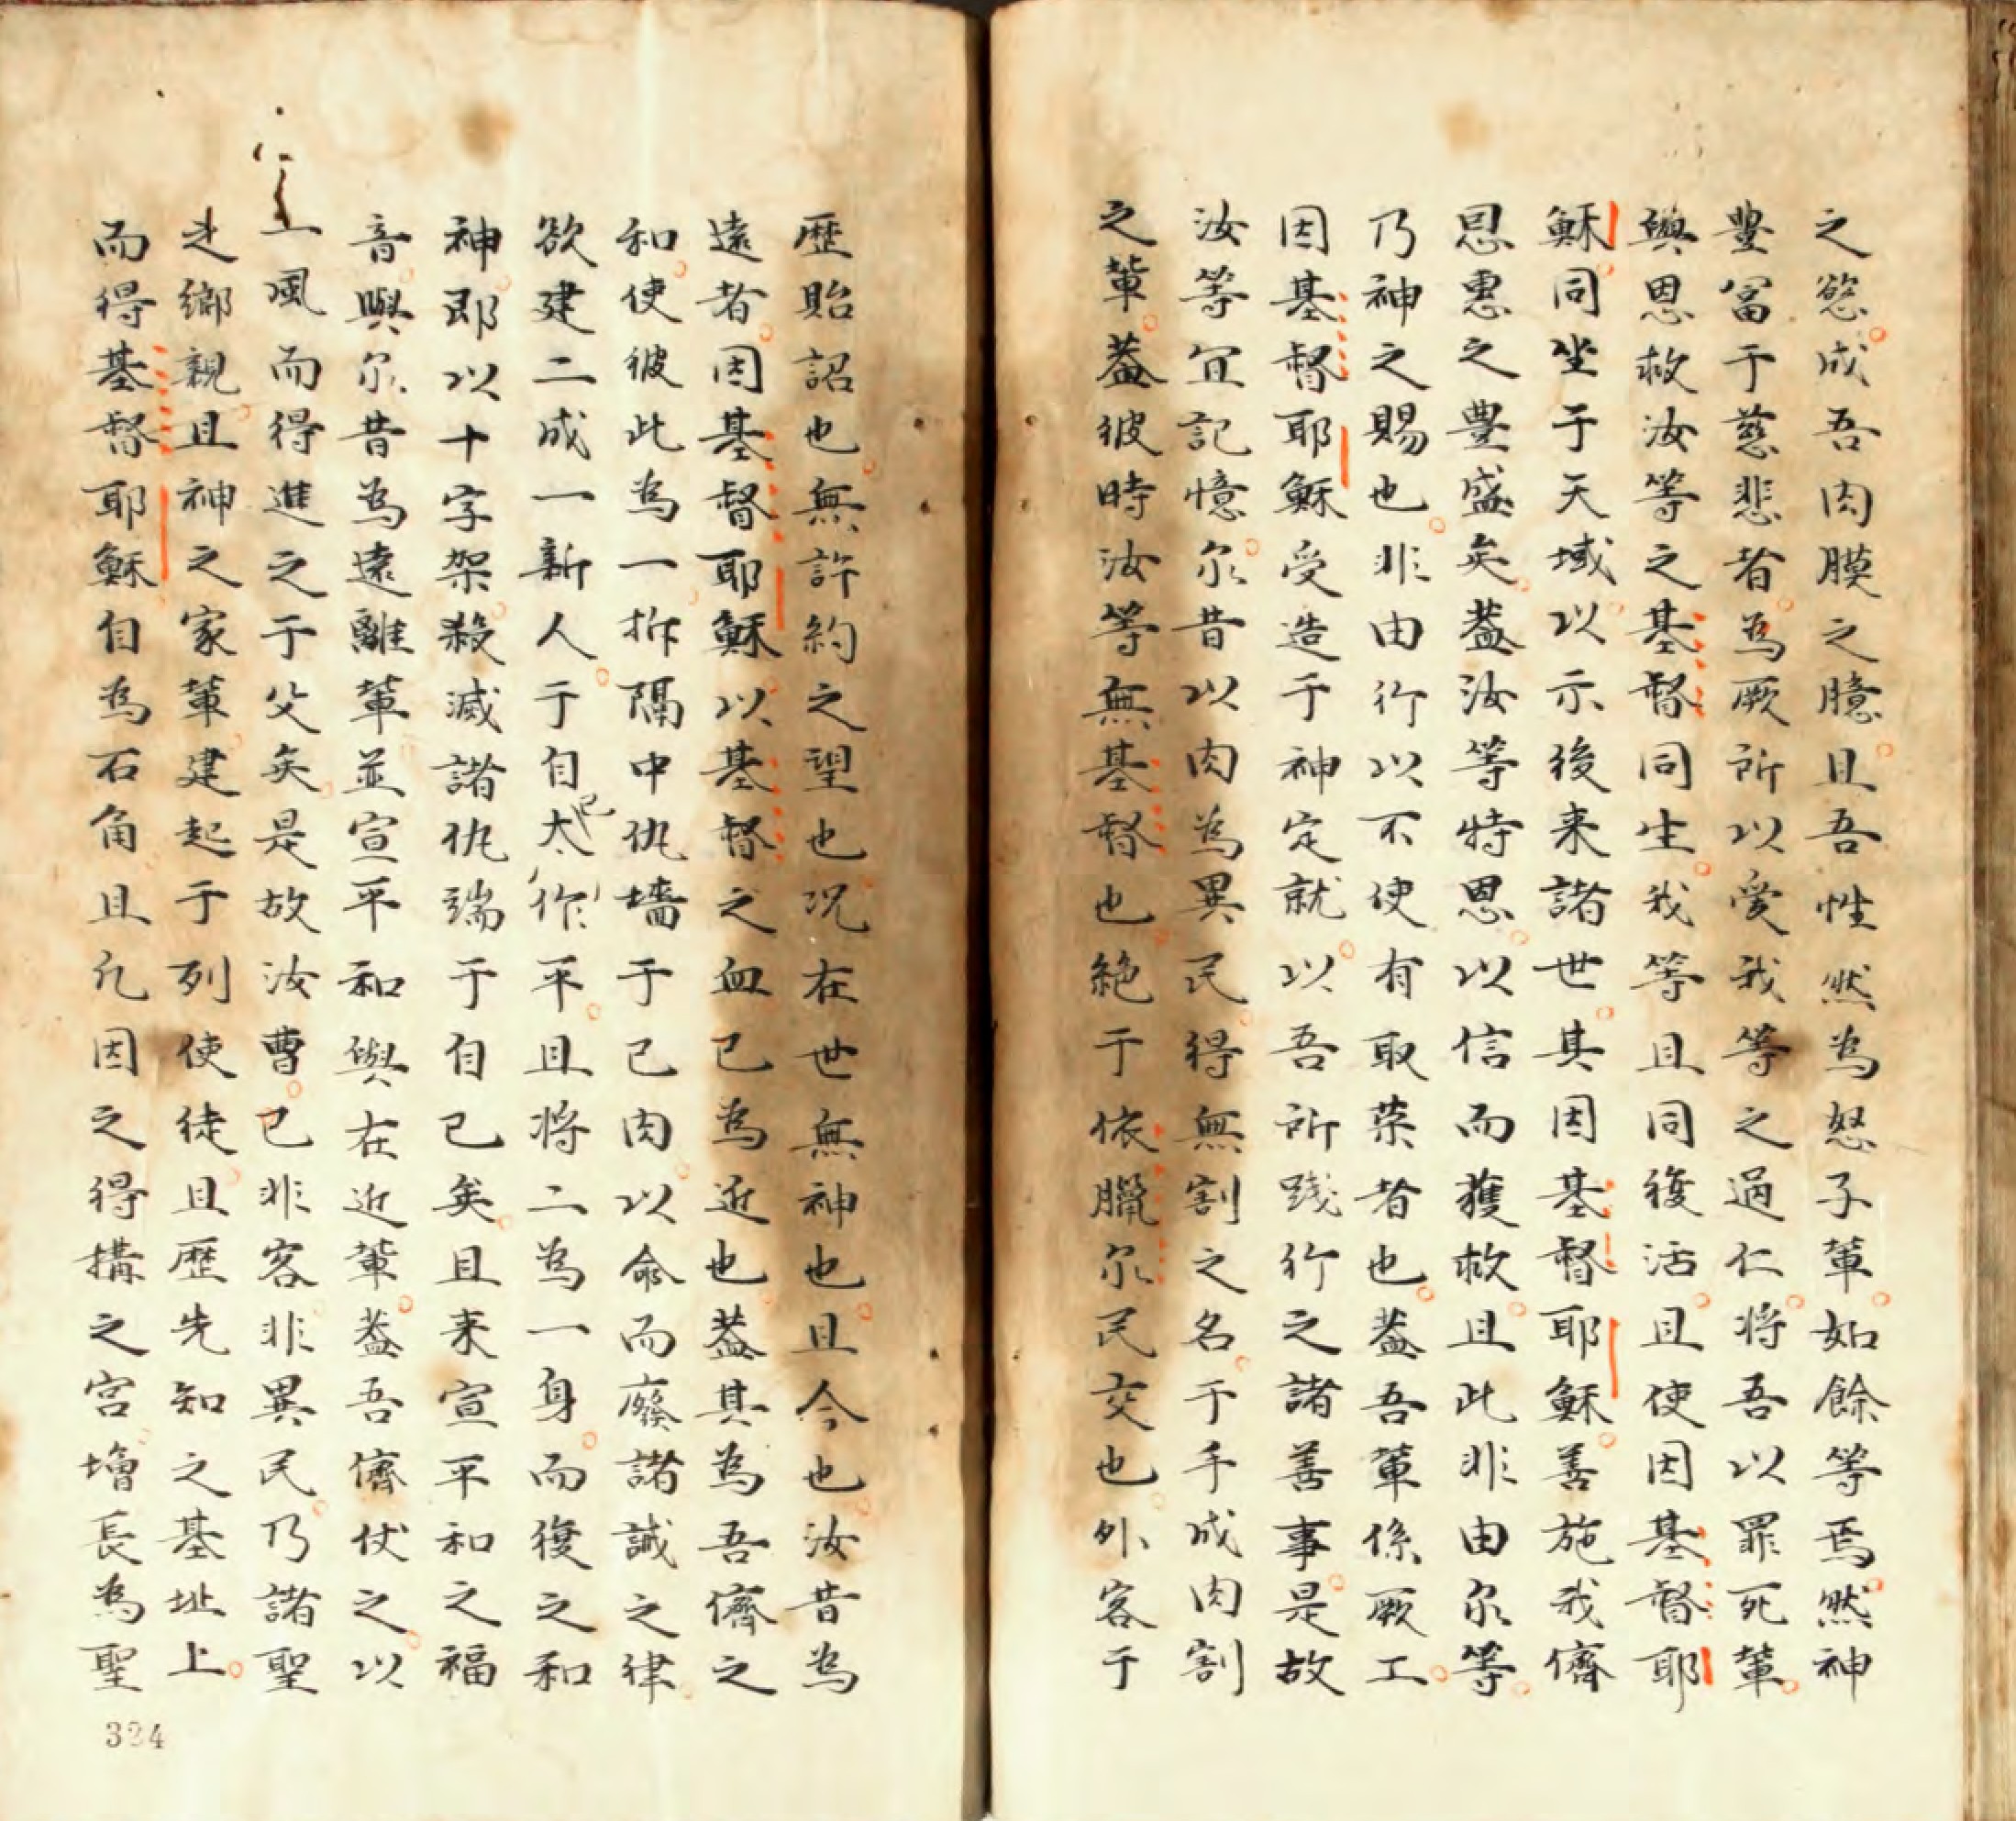 之慾成吾肉膜之臆且吾性然為怒子軰如餘等焉然神
豐冨于慈悲者為厥所以愛我等之過仁将吾以罪死軰
與恩救汝等之基督同生我等且同復活且使因基督耶
穌同坐于天域以示後来諸世其因基督耶穌善施我儕
恩惠之豊盛矣葢汝等特恩以信而獲救且此非由尔等
乃神之賜也非由行以不使有取荣者也葢吾軰係厥工
因基督耶穌受造于神定就以吾所踐行之諸善事是故
汝等冝記憶尔昔以肉為異民得無割之名于手成肉割
之軰葢彼時汝等無基督也絶于依臘尔民交也外客于
歷貽詔也無許約之望也况在世無神也且今也汝昔為
遠者因基督耶穌以基督之血已為近也葢其為吾儕之
和使彼此為一拆隔中仇墻于己肉以命而廢諸誡之律
欲建二成一新人于自太己作平且将二為一身而復之和
神即以十字架殺滅諸仇端于自己矣且来宣平和之福
音與尔昔為遠離軰並宣平和與在近軰葢吾儕仗之以
一風而得進之于父矣是故汝曹已非客非異民乃諸聖
之鄉親且神之家軰建起于列使徒且歷先知之基址上
而得基督耶穌自為石角且凢因之得搆之宫增長為聖
334